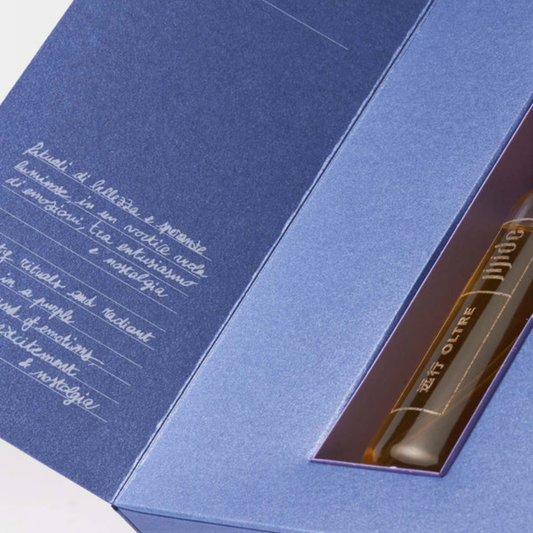 Rituali di bellezza e speranze
luminose in un vortice viola
di emozioni, tra entusiasmo
e nostalgia
rituals and radiant
in a purple
of emotions,
excitement
e nostalgia
远行 OLTRE